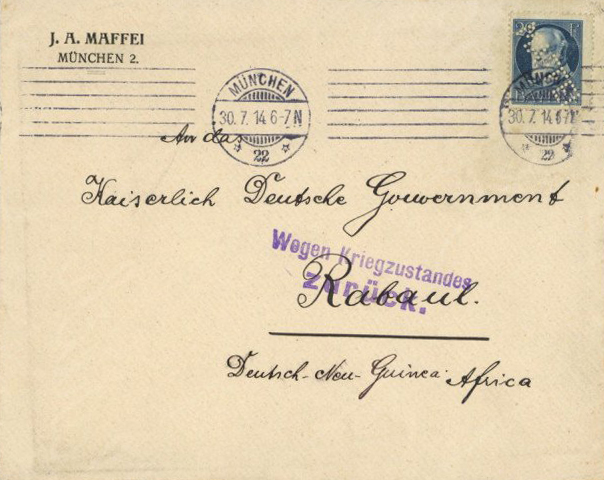 J. A. MAFFEI
MÜNCHEN 2.
20 Pf
MÜNCHEN
30. 7. 14 6-7 N
* 22 *
MÜNCHEN
30. 7. 14 6-7 N
* 22 *
An das
Kaiserlich Deutsche Gouvernment
Wegen Kriegzustandes
zurück.
Rabaul.
Deutsch-Neu-Guinea Africa